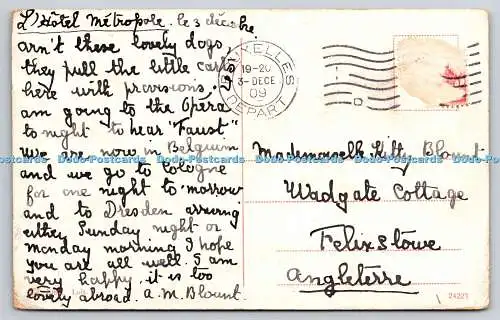 L'Hôtel Métropole. le 3 décbre.
arn't these lovely dogs,
they pull the little carts
here with provisions. I
am going to the Opera
to night to hear "Faust"
We are now in Belguim
and we go to Cologne
for one night to'morrow
and to Dresden arriving
either Sunday night or
Monday morning. I hope
you are all well. I am
very happy, it is too
lovely abroad. a. M. Blount.
BRUXELLES
19-20
3-DECE
09
DEPART
Mademoiselle Kitty Blount
Wadgate Cottage
Felixstowe
Angleterre
24221
Dodo-Postcards Dodo-Postcards Dodo-Postcards Dodo-Postcards Dodo-Postcards Dodo-Postcards